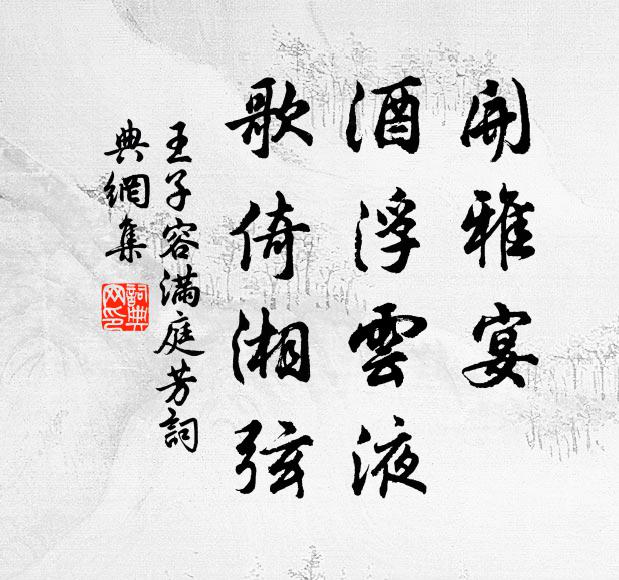 開雅宴
酒浮雲液
歌倚湘弦
王子容滿庭芳詞
典網集
詞典網印